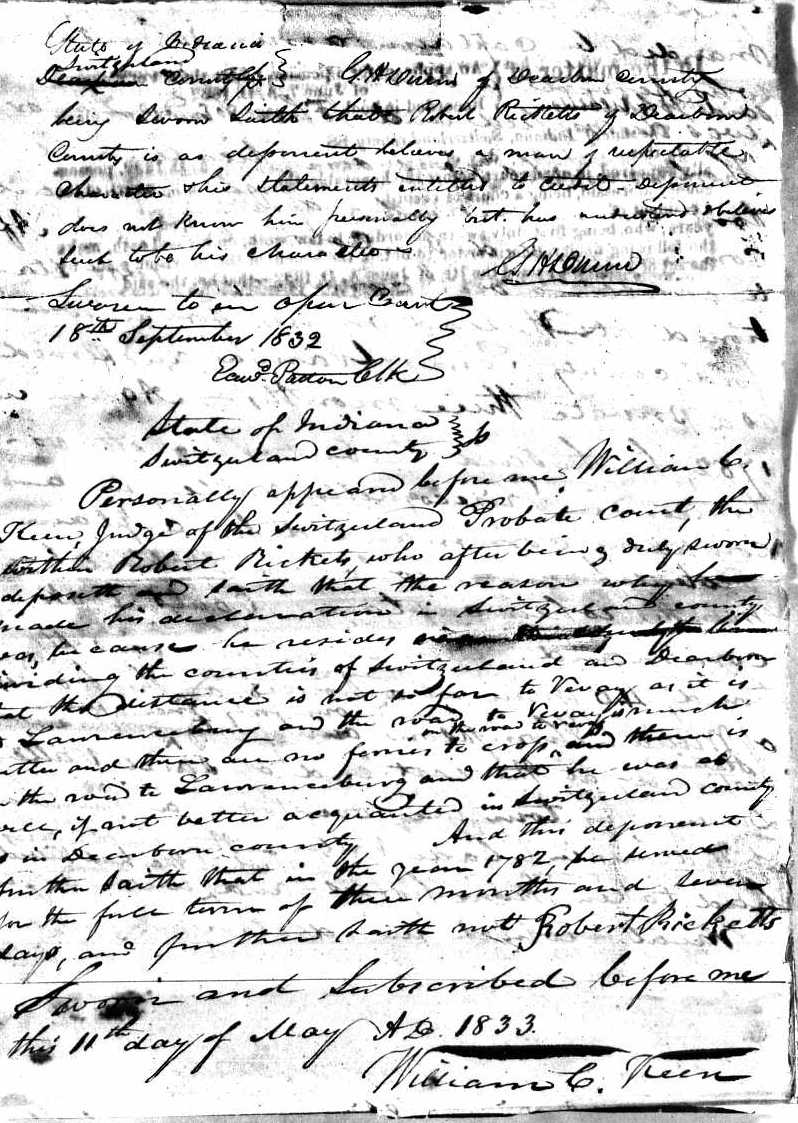 State of Indiana
Switzerland
Dearborn County Ss G H Dunn of Dearborn County
being Sworn Saith that Robert Ricketts of Dearborn
County is as deponent believes a man of respectable
Character & his statements entitled to credit - Deponent
does not know him personally but has understood & believes
such to be his character
G H Dunn
Sworn to in open Court
18th September 1832
Edwd. Patton Clk
State of Indiana
Switzerland county Ss
Personally appeared before me William C.
Keen, Judge of the Switzerland Probate court, the
within Robert Rickets, who after being duly sworn
deposeth and saith that the reason why he
made his declaration in Switzerland county
was, because he resides
dividing the counties of Switzerland and Dearborn
that the distance is not so far to Vevay as it is
to Lawrenceburg and the road to Vevay is much
better and there are no ferries to cross on the road to Vevay, and there is
on the road to Lawrenceburg and that he was as
well, if not better acquainted in Switzerland county
as in Dearborn county And this deponent
further saith that in the year 1782, he served
for the full term of three months and seven
days, and further saith not Robert Ricketts
Sworn and Subscribed before me
this 11th day of May A D. 1833.
William C. Keen